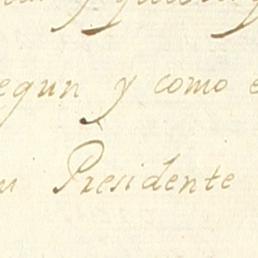 egun y como e
u Presidente